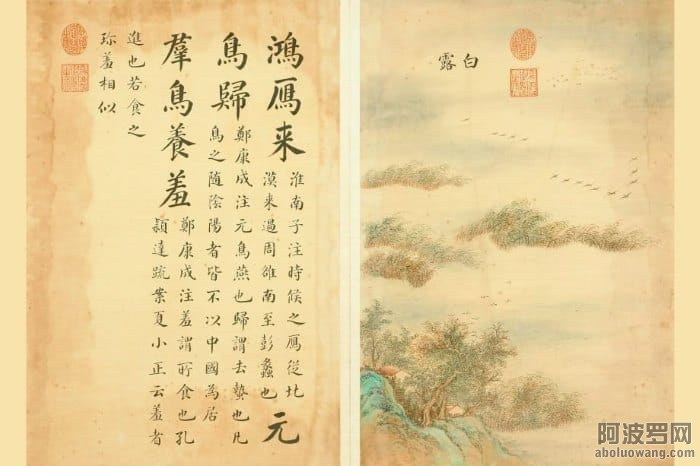 白露
鴻鴈来
淮南子注時候之鴈從北
漠来過周雒南至彭蠡也
元
鳥歸
鄭康成注元鳥燕也歸謂去蟄也凡
鳥之随陰陽者皆不以中國為居
羣鳥養羞
鄭康成注羞謂所食也孔
穎達疏案夏小正云羞者
進也若食之
珎羞相似
阿波罗网
aboluowang.com